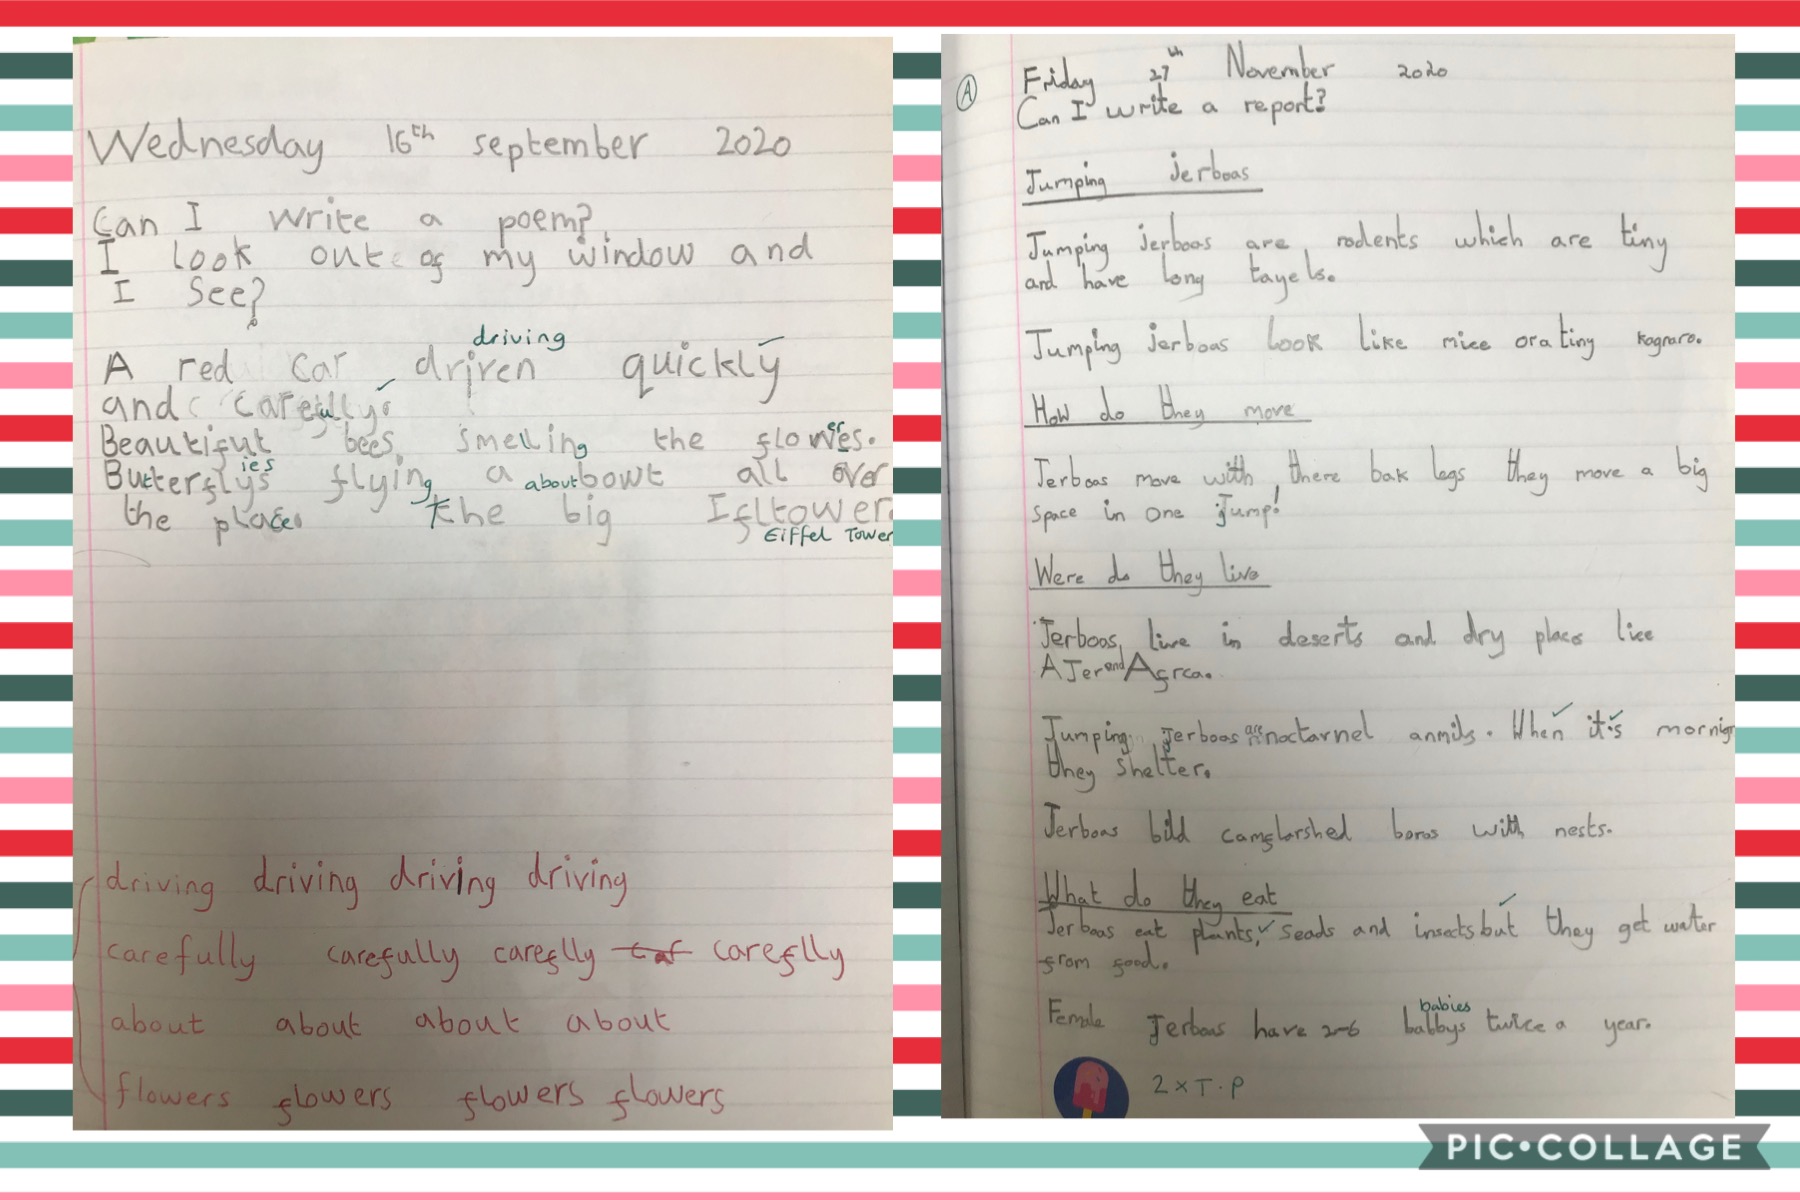 Wednesday 16th september 2020
Can I write a poem?
I look out of my window and
I see?
driving
A red car driven quickly
and carefully
Beautifut bees smelling the flowers.
ies
Butterflys flying a about bowt all over
the place. The big Ifltower.
Eiffel Tower
driving driving driving driving
carefully carefully careflly caf careflly
about about about about
flowers flowers flowers flowers
A
Friday 27th November 2020
Can I write a report?
Jumping jerboas
Jumping jerboas are rodents which are tiny
and have long tayels.
Jumping jerboas look like mice or a tiny kagraro.
How do they move
Jerboas move with there bak legs they move a big
space in one jump!
Were do they live
Jerboas live in deserts and dry place lice
AJer and Afrca.
Jumping jerboas are noctarnel annils. When it's mornig
they shelter.
Jerboas bild camflarshed boros with nests.
What do they eat
Jerboas eat plants, seads and insects but they get water
from food.
babies
Female Jerboas have 2-6 babbys twice a year.
2 x T.P
PIC•COLLAGE